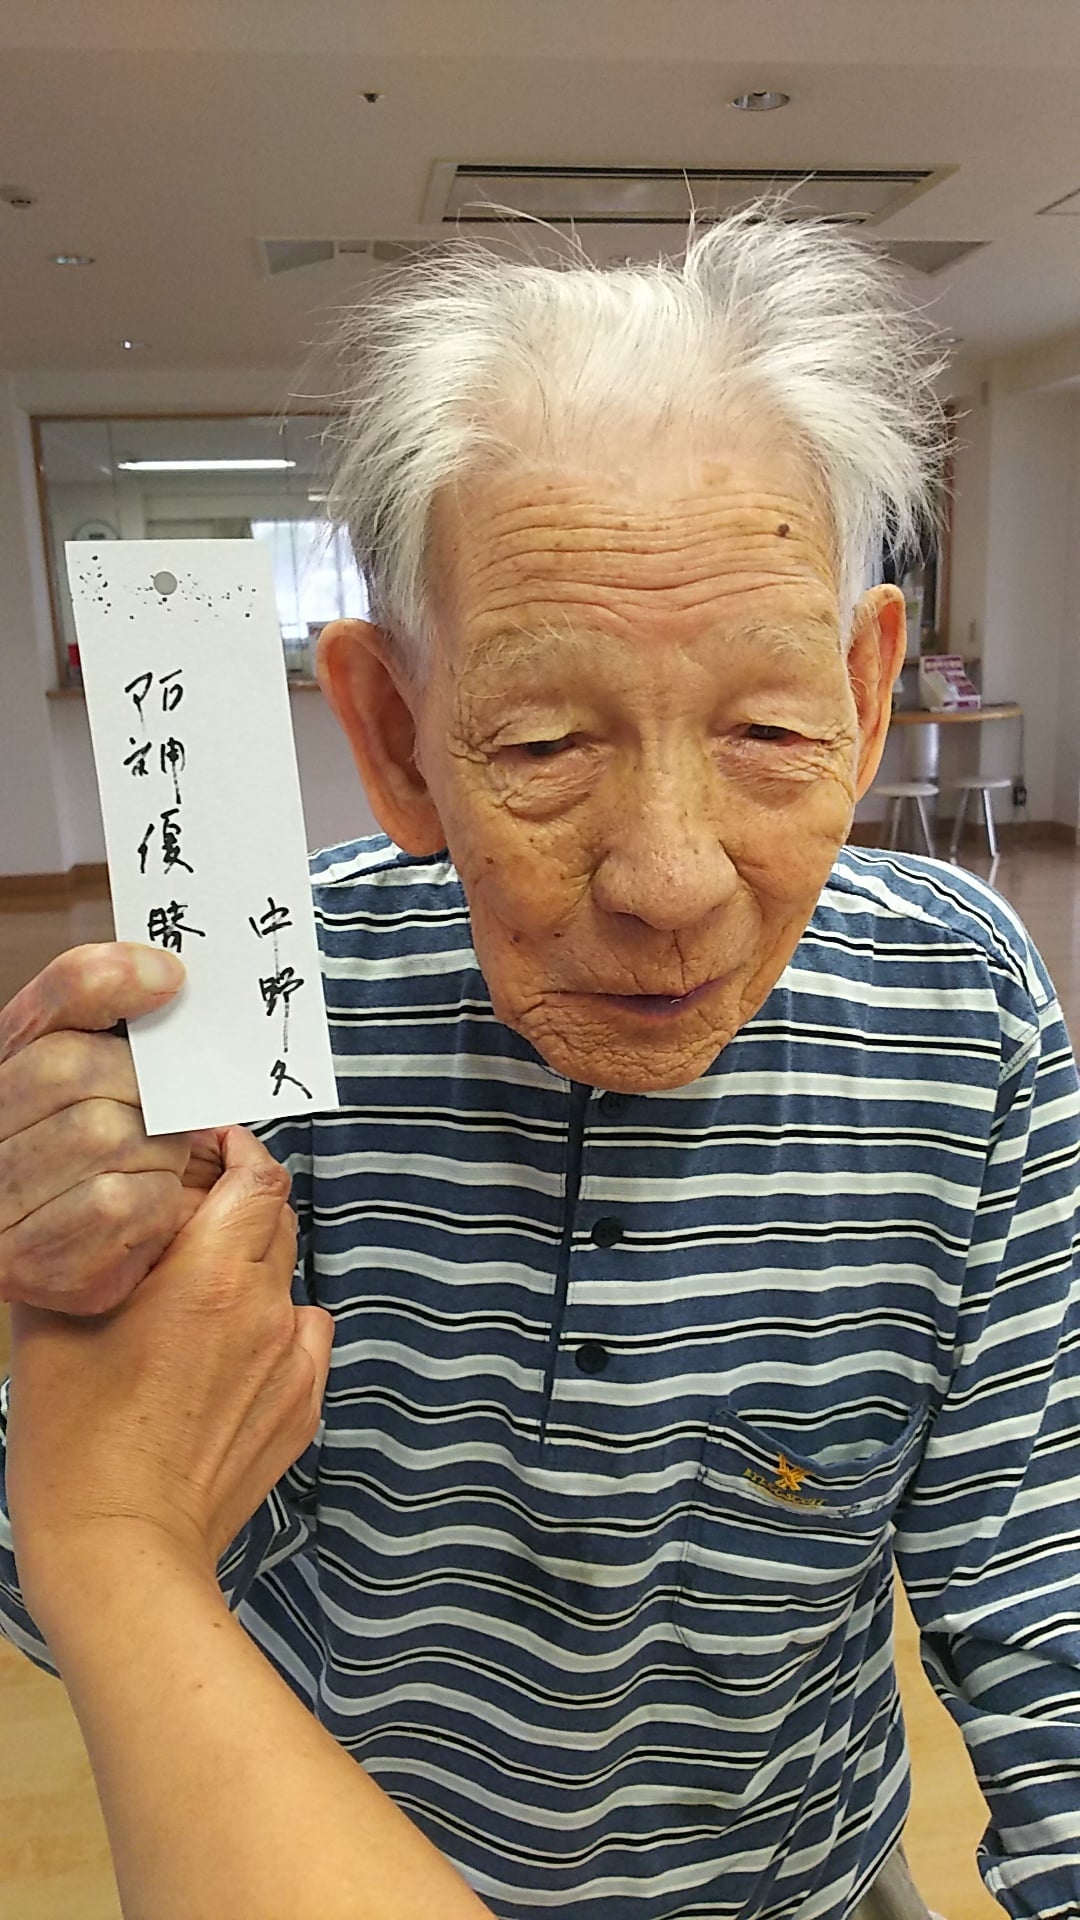 阪神優勝
中野久